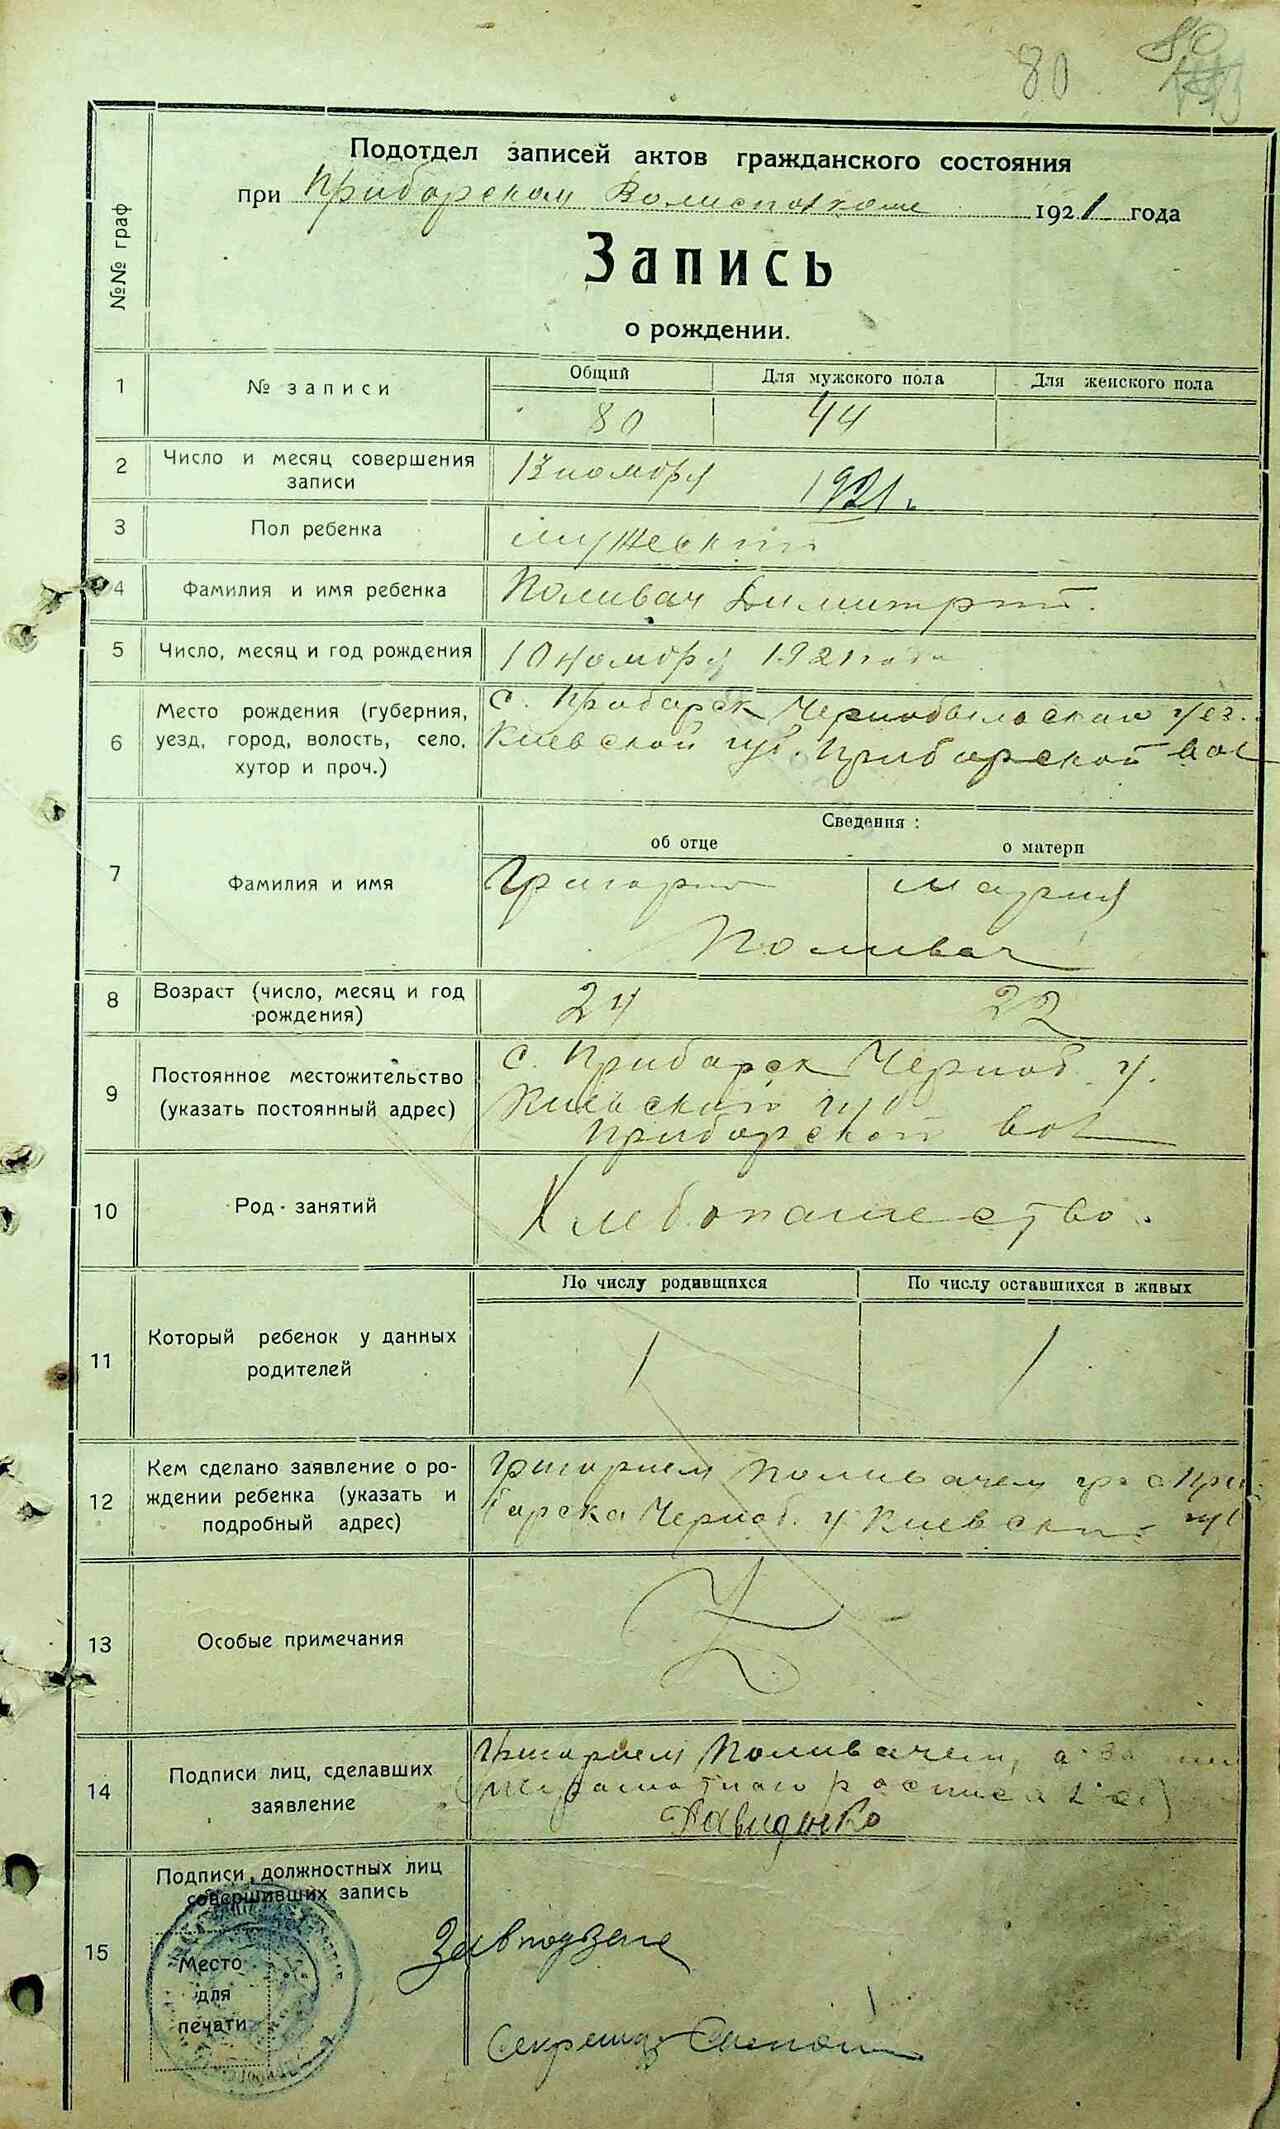 80 80
Подотдел записей актов гражданского состояния
при Приборском Волисполкоме 1921 года
Запись
о рождении.
№№ граф
Общий Для мужского пола Для женского пола
1 № записи 80 44
2 Число и месяц совершения записи 13 ноября 1921 г.
3 Пол ребенка мужеский
4 Фамилия и имя ребенка Поливач Димитрий.
5 Число, месяц и год рождения 10 ноября 1921 года
6 Место рождения (губерния, с. Приборск Чернобыльского уез.
уезд, город, волость, село, Киевской губ. Приборской вол
хутор и проч.)
Сведения:
об отце о матери
7 Фамилия и имя Григорий Мария
Поливач
8 Возраст (число, месяц и год 24 22
рождения)
9 Постоянное местожительство с. Приборск Черноб. у.
(указать постоянный адрес) Киевской губ
Приборской вол
10 Род занятий Хлебопашество.
По числу родившихся По числу оставшихся в живых
11 Который ребенок у данных 1 1
родителей
12 Кем сделано заявление о ро- Григорием Поливачем гр с При-
ждении ребенка (указать и борска Черноб. у Киевской губ
подробный адрес)
13 Особые примечания
14 Подписи лиц, сделавших Григорием Поливачем, а за
заявление неграмотного росписался
Давиденко
15 Подписи должностных лиц
совершивших запись
Место
для
печати
Завподзагс
Секретарь